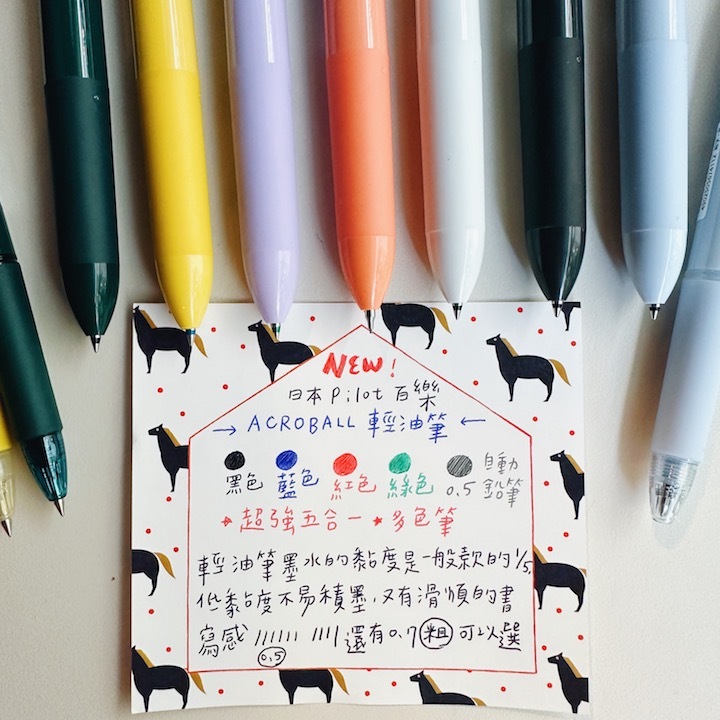 NEW!
日本 Pilot 百樂
→ ACROBALL 輕油筆 ←
黑色 藍色 紅色 綠色 0.5 自動鉛筆
★超強五合一 ★多色筆
輕油筆墨水的黏度是一般款的1/5,
低黏度不易積墨,又有滑順的書
寫感 還有0.7 粗 可以選
0.5